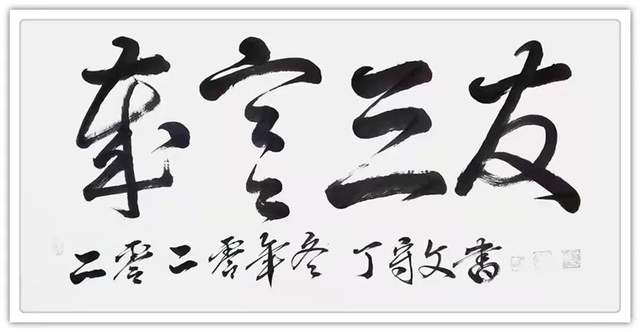 岁寒三友
二零二零年冬 丁守文书